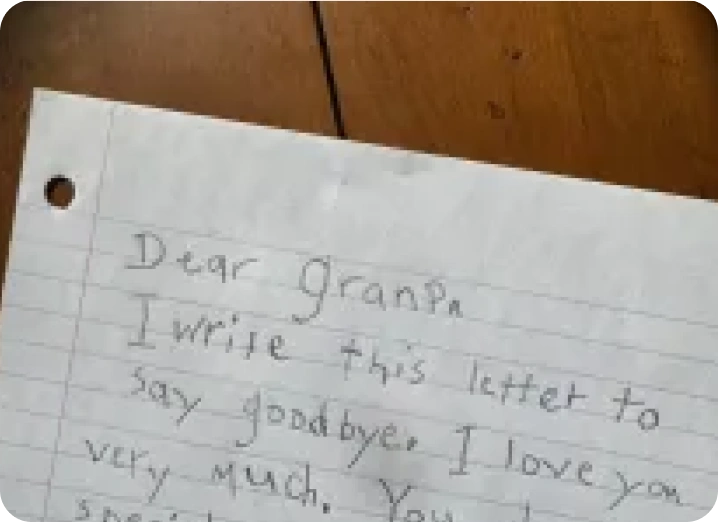 Dear granPa
I write this letter to
say goodbye. I love you
very much. You